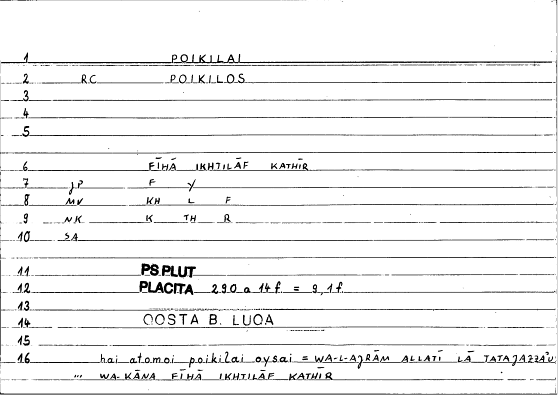 1 POIKILAI
2 RC POIKILOS
3
4
5
6 FĪHĀ IKHTILĀF KATHĪR
7 JP F Y
8 MV KH L F
9 NK K TH R
10 SA
11 PS PLUT
12 PLACITA 290 a 14 f. = 9,1 f.
13
14 QOSTA B. LUQA
15
16 hai atomoi poikilai oysai = WA-L-AJRĀM ALLATĪ LĀ TATAJAZZAʾU
... WA-KĀNA FĪHĀ IKHTILĀF KATHĪR